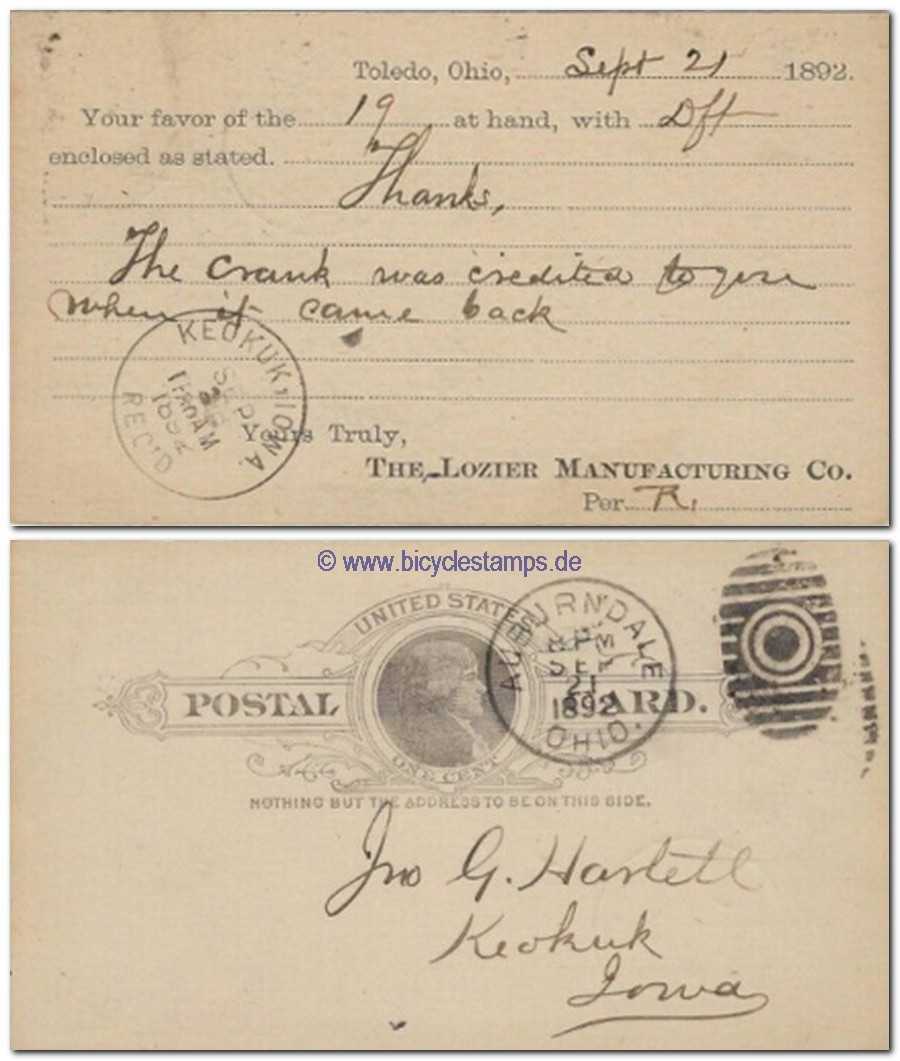 Toledo, Ohio, Sept 21 1892.
Your favor of the 19 at hand, with Dft
enclosed as stated.
Thanks,
The crank was credited to you
when it came back
KEOKUK, IOWA.
SEP
1892
REC'D
Yours Truly,
THE LOZIER MANUFACTURING CO.
Per R.
© www.bicyclestamps.de
UNITED STATES
POSTAL CARD.
ONE CENT
AUBURNDALE
8 PM
SEP
21
1892
OHIO.
NOTHING BUT THE ADDRESS TO BE ON THIS SIDE.
Jno G.
Keokuk
Iowa